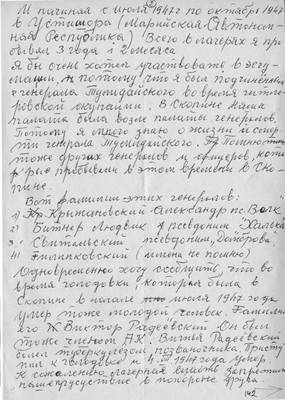 И начиная с июля 1947 по октябрь 1947
в Устишора (Марийская Автоном-
ная Республика) Всего в лагерях я про
бывал 3 года и 2 месяца
Я бы очень хотел участвовать в эсгу-
мации, потому что я был подчиненным
генерала Тумидайского во время гитле-
ровской окупации. В Скопине наша
палата была возле палаты генералов.
Потому я много знаю о жизни и смер-
ти генерала Тумидайского. Помню
тоже других генералов и офицеров, кото
рые пребывали в этом времени в Ско-
пине.
Вот фамилии этих генералов:
1) Кржижановский Александр пс. Волк
2) Битнер Людвик псевдоним Халька
3) Свитальский псевдоним Домброва
4) Филипковский (имени не помню)
Одновременно хочу сообщить, что во
время голодовки, которая была в
Скопине в начале июля 1947 года
умер тоже молодой человек. Фамилия
его Виктор Радеевский. Он был
тоже членом АК. Витя Радеевский
болел туберкулезом позваночника. Присту
пил к голодовке и 4. 1947 года умер.
К сожалению лагерная власть запретила
нам присуствие в похороне друга.